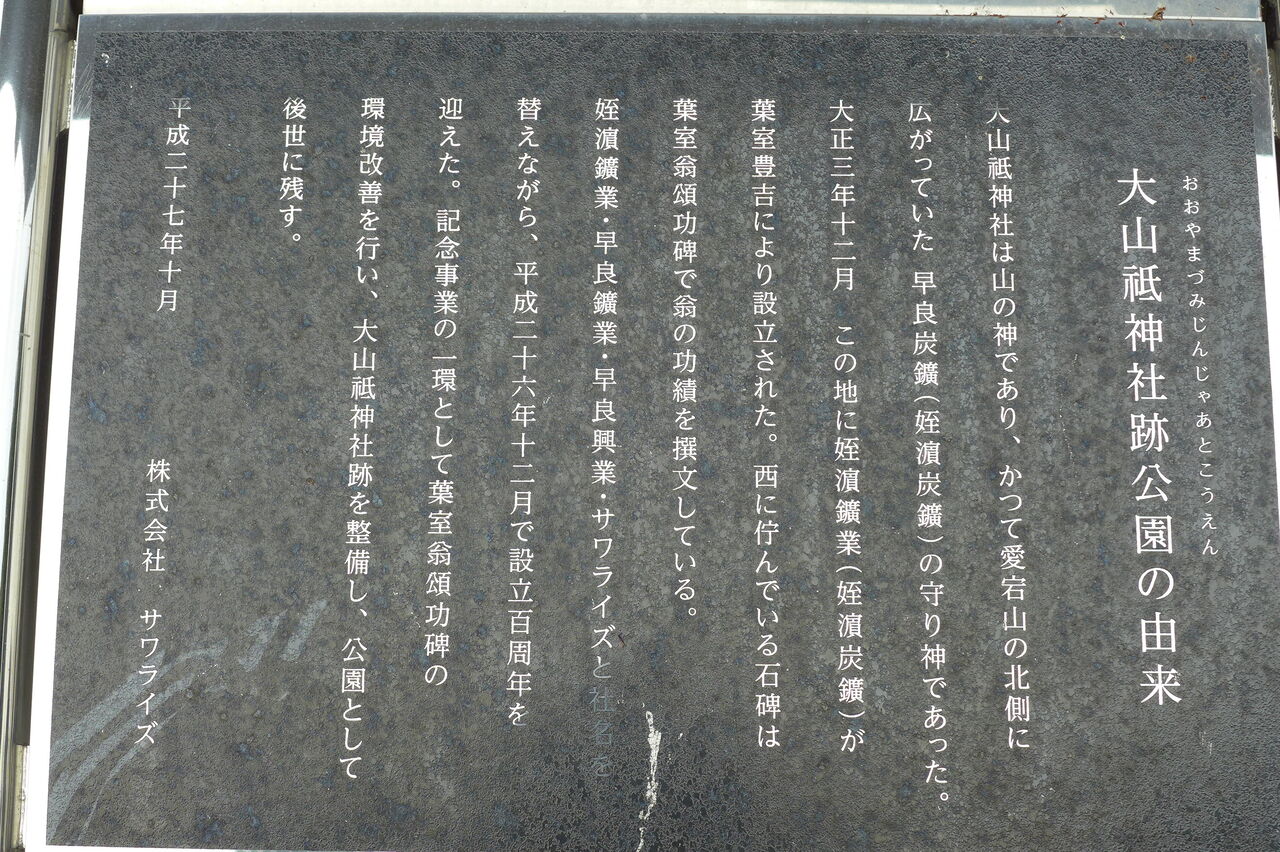 おおやまづみじんじゃあとこうえん
大山祗神社跡公園の由来
大山祗神社は山の神であり、かつて愛宕山の北側に
広がっていた 早良炭鑛(姪濵炭鑛)の守り神であった。
大正三年十二月 この地に姪濵鑛業(姪濵炭鑛)が
葉室豊吉により設立された。西に佇んでいる石碑は
葉室翁頌功碑で翁の功績を撰文している。
姪濵鑛業・早良鑛業・早良興業・サワライズと社名を
替えながら、平成二十六年十二月で設立百周年を
迎えた。記念事業の一環として葉室翁頌功碑の
環境改善を行い、大山祗神社跡を整備し、公園として
後世に残す。
平成二十七年十月
株式会社 サワライズ